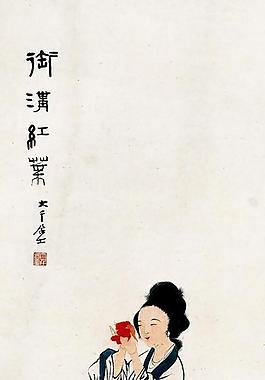 御溝紅葉
大千居士